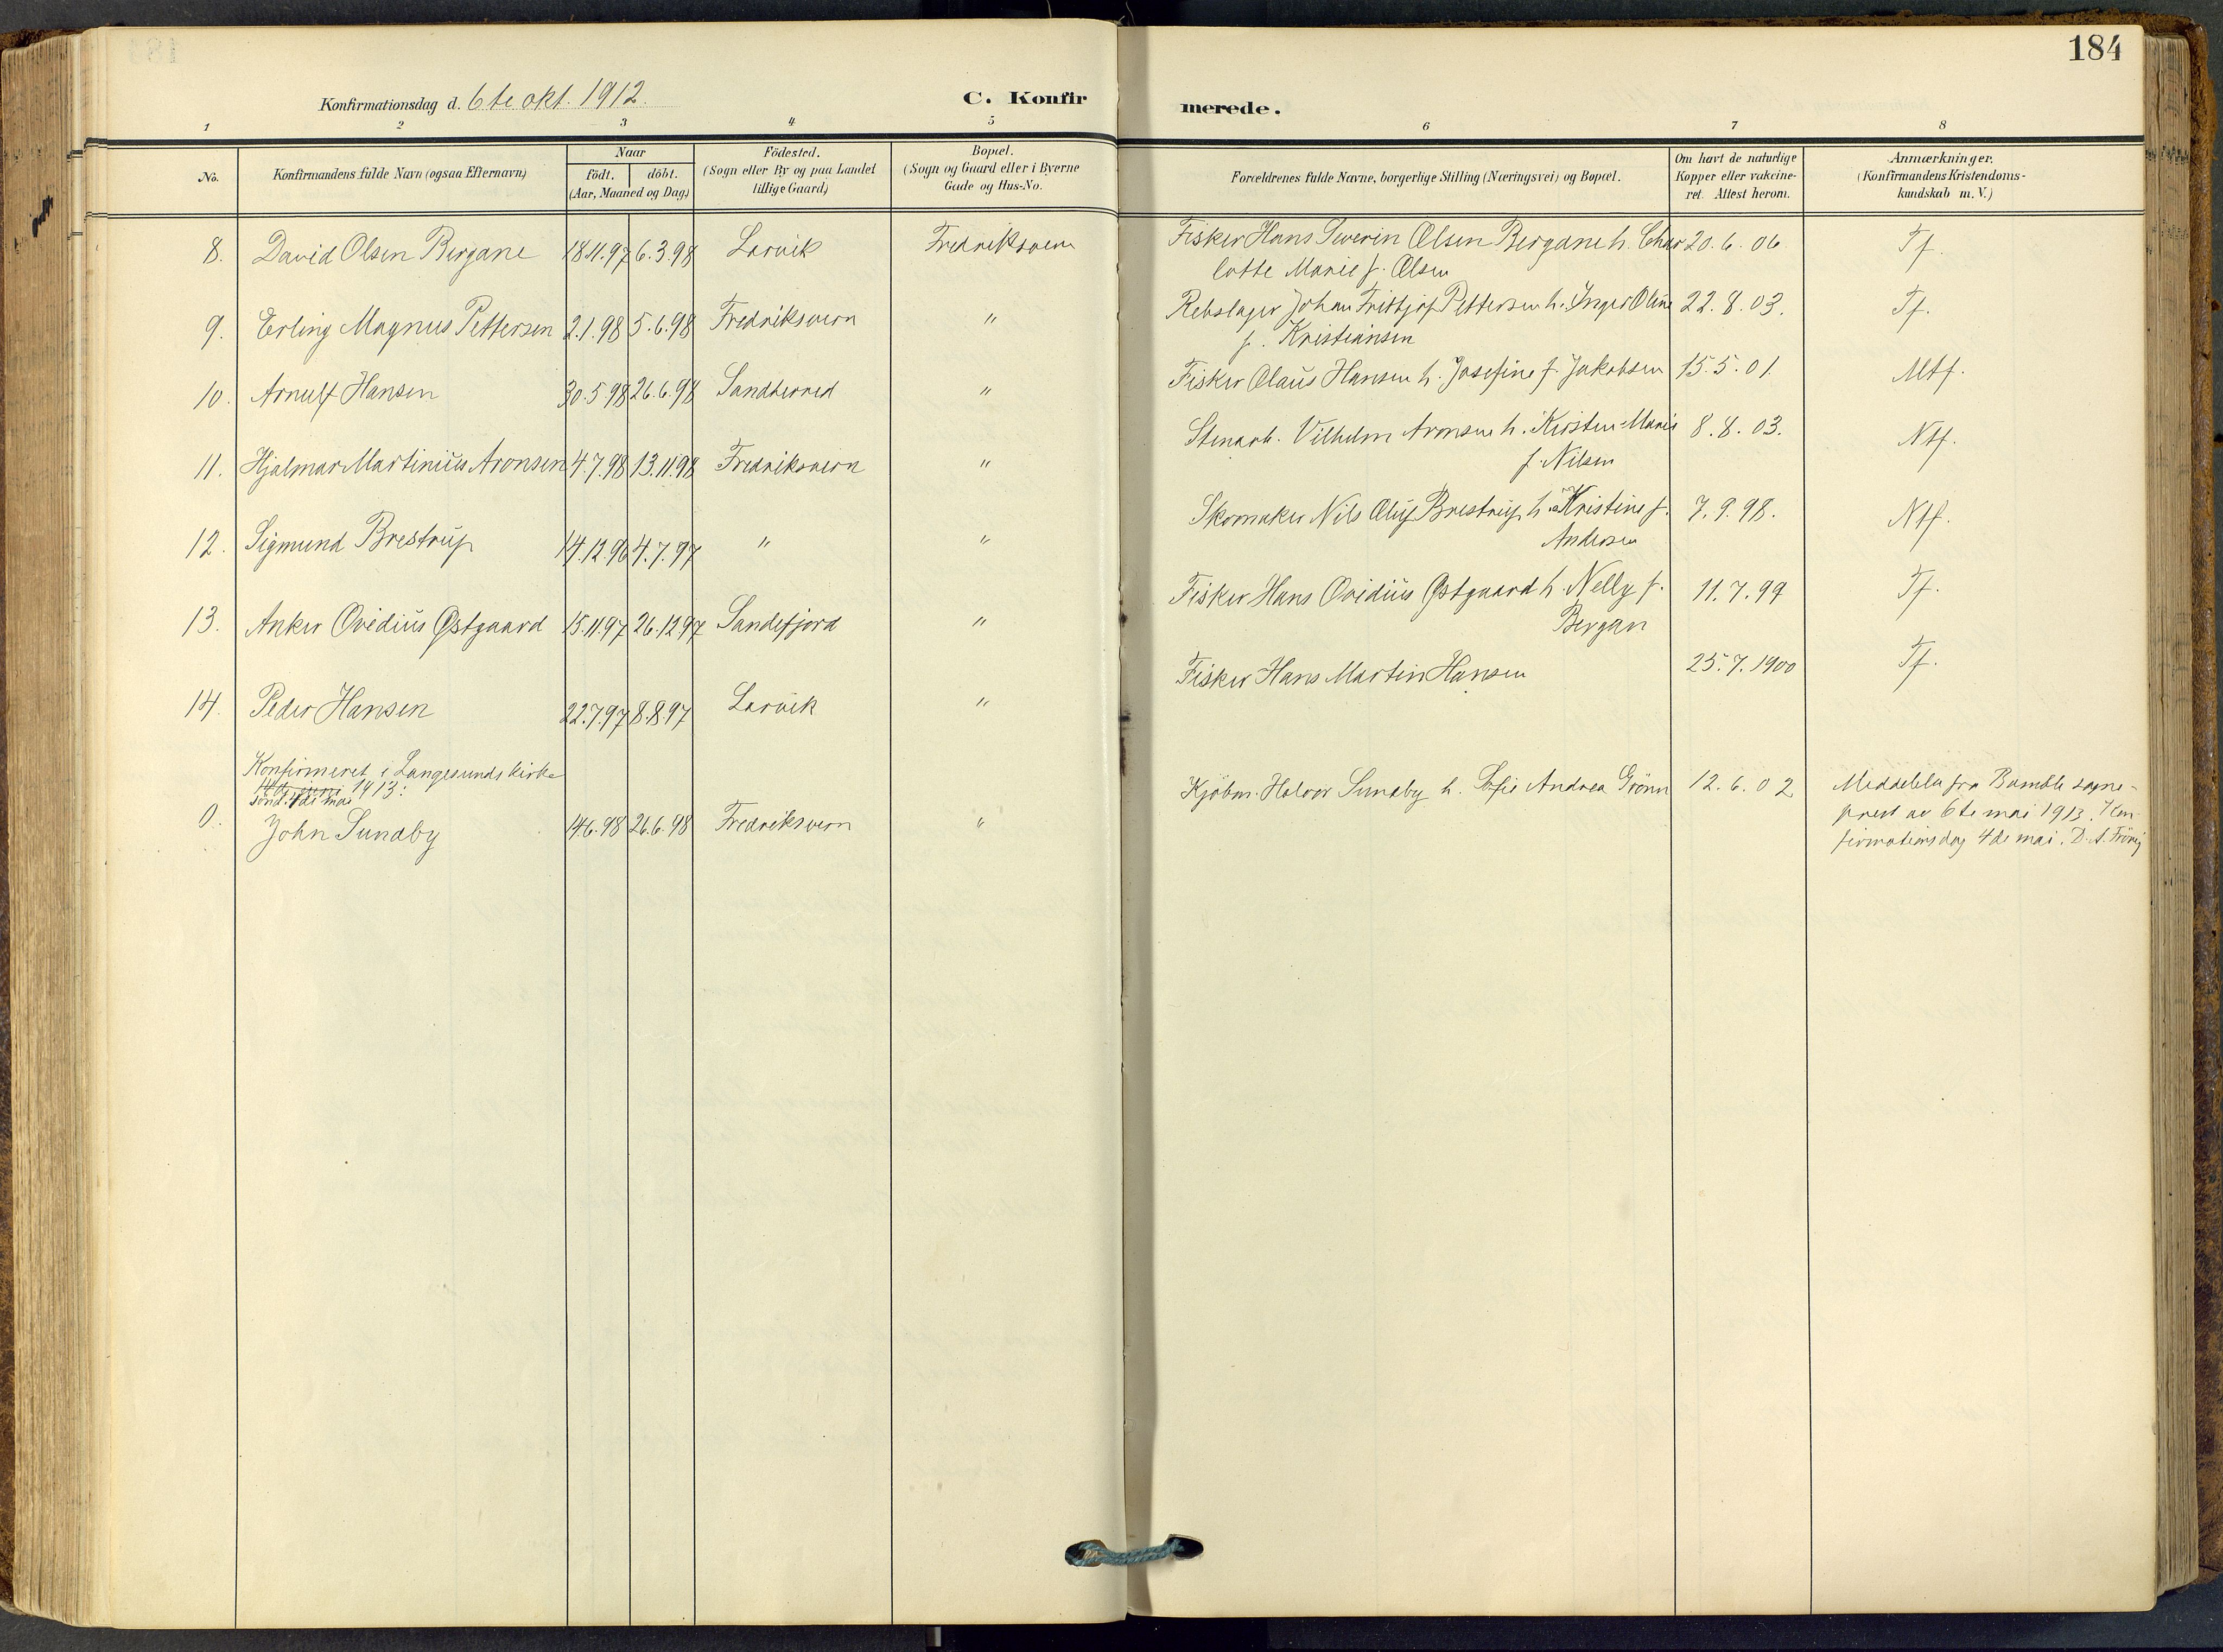 184
Konfirmationsdag d. 6te okt. 1912.
C. Konfirmerede.
1 2 3 4 5 6 7 8
No.
Konfirmandens fulde Navn (ogsaa Efternavn)
Naar
födt. döbt.
(Aar, Maaned og Dag.)
Födested.
(Sogn eller By og paa Landet
tillige Gaard)
Bopæl.
(Sogn og Gaard eller i Byerne
Gade og Hus-No.
Forældrenes fulde Navne, borgerlige Stilling (Næringsvei) og Bopæl.
Om havt de naturlige
Kopper eller vakcine-
ret. Attest herom.
Anmærkninger.
(Konfirmandens Kristendoms-
kundskab m. V.)
8. David Olsen Bergane 18.11.97 6.3.98 Larvik Fredriksvern Fisker Hans Severin Olsen Bergane h. Char 20.6.06 Tf.
lotte Marie f. Olsen
9. Erling Magnus Pettersen 2.1.98 5.6.98 Fredriksvern " Rebslager Johan Fritjof Pettersen h. Inger Oline 22.8.03. Tf.
f. Kristiansen
10. Arnulf Hansen 30.5.98 26.6.98 Sandherred " Fisker Olaus Hansen h. Josefine f. Jakobsen 15.5.01. Mtf.
11. Hjalmar Martinius Aronsen 4.7.98 13.11.98 Fredriksvern " Stenarb. Vilhelm Aronsen h. Kirsten Marie 8.8.03. Ntf.
f. Nilsen
12. Sigmund Brestrup 14.12.96 4.7.97 " " Skomaker Nils Oluf Brestrup h. Kristine f. 7.9.98. Ntf.
Andersen
13. Anker Ovedius Østgaard 15.11.97 26.12.97 Sandefjord " Fisker Hans Ovidius Østgaard h. Nelly f. 11.7.99 Tf.
Bergan
14. Peder Hansen 22.7.97 8.8.97 Larvik " Fisker Hans Martin Hansen 25.7.1900 Tf.
Konfirmeret i Langesunds kirke
1913:
sönd. 4de mai
0. John Sundby 14.6.98 26.6.98 Fredriksvern " Kjöbm. Halvor Sundby h. Sofie Andrea Grönn 12.6.02
Meddelelse fra Bamble sogne-
prest av 6te mai 1913. Kon-
firmationsdag 4de mai. D. A.